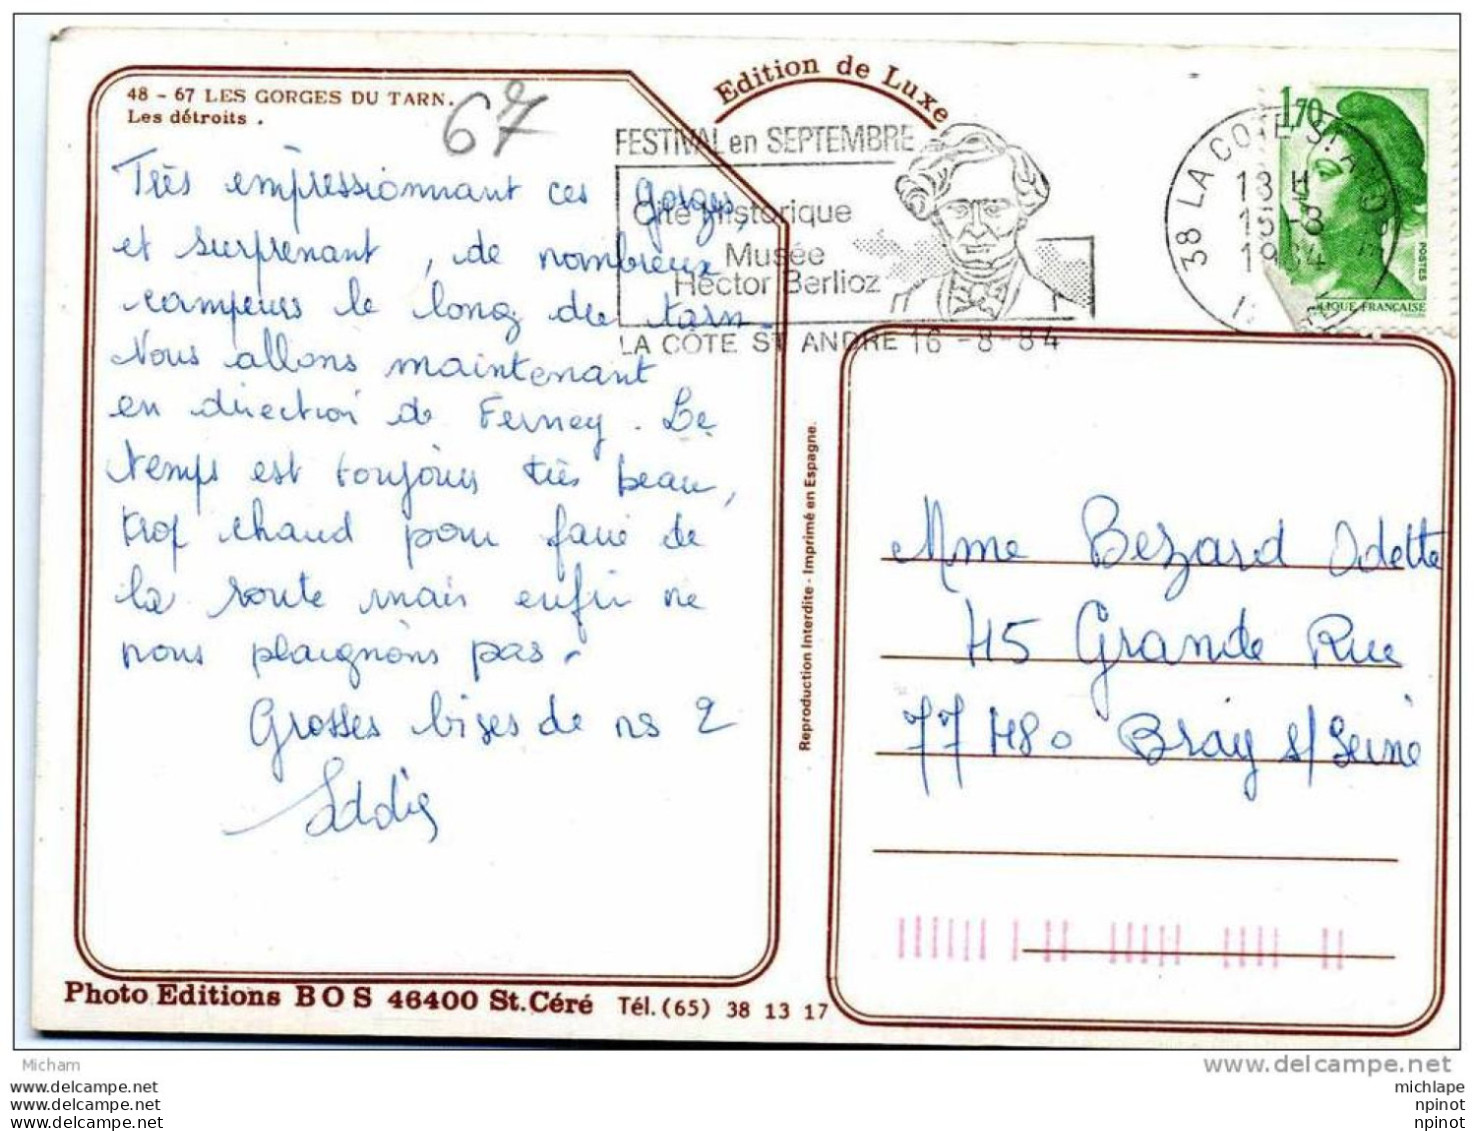 48 - 67 LES GORGES DU TARN.
Les détroits .
67
Edition de Luxe
FESTIVAL en SEPTEMBRE
Cité Historique
Musée
Hector Berlioz
LA COTE ST ANDRE 16-8-84
38 LA COTE ST A
18 H
15-8
1984
1,70
POSTES
LIQUE FRANÇAISE
Très empressionnant ces gorges,
et surprenant, de nombreux
campeurs le long du tarn.
Nous allons maintenant
en direction de Ferney. Le
temps est toujours très beau,
trop chaud pour faire de
la route mais enfin ne
nous plaignons pas.
Grosses bises de ns 2
Reproduction Interdite - Imprimé en Espagne.
Mme Bezard Odette
45 Grande Rue
77480 Bray s/Seine
Photo Editions BOS 46400 St.Céré Tél.(65) 38 13 17
Micham
www.delcampe.net
www.delcampe.net
www.delcampe.net
delcampe.net
michlape
npinot
npinot